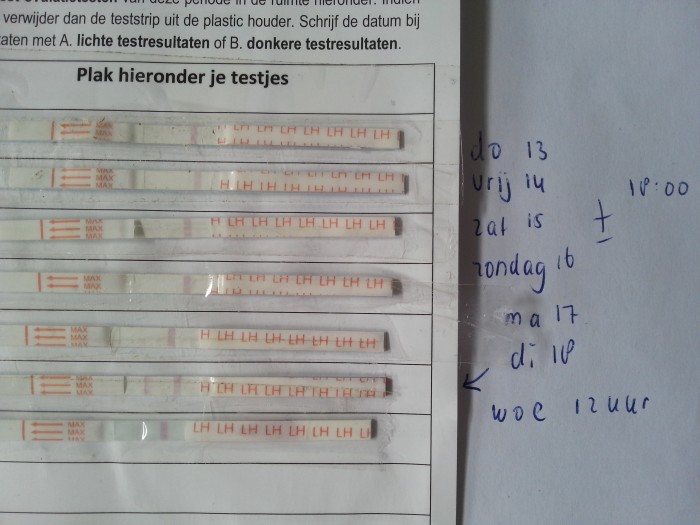 verwijder dan de teststrip uit de plastic houder. Schrijf de datum bij
aten met A. lichte testresultaten of B. donkere testresultaten.
Plak hieronder je testjes
LH LH LH LH LH LH LH do 13
H LH LH LH LH LH LH vrij 14 18:00
MAX MAX MAX H LH LH LH LH LH LH LH zat 15 ±
MAX MAX MAX LH LH LH LH LH LH LH zondag 16
MAX MAX H LH LH LH LH LH LH LH ma 17
MAX MAX H LH LH LH LH LH LH LH di 18
MAX MAX LH LH LH LH LH LH LH LH woe 12 uur